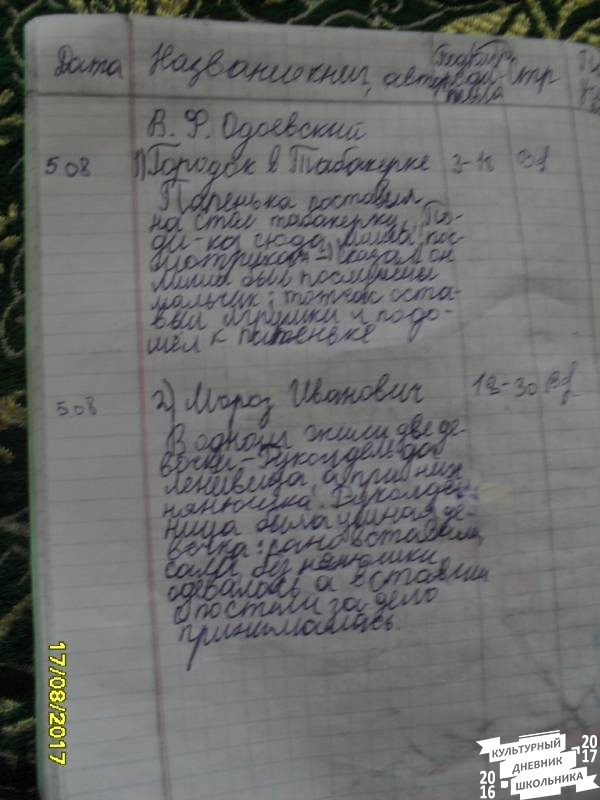 Дата Название книг, автор Подпись родителя стр
В. Ф. Одоевский
5 08 1) Городок в Табакерке 3-11
Папенька поставил
на стол табакерку. По-
ди-ка сюда, Миша, пос-
мотри-ка - сказал он
Миша был послушный
мальчик; тотчас оста-
вил игрушки и подо-
шел к папеньке
5.08 2) Мороз Иванович 12-30
В одном жили две де-
вочки Рукодельца
Ленивица, а при них
нянюшка. Рукодель-
ница была умная де-
вочка: рано вставала,
сама без нянюшки
одевалась а вставши
с постели за дело
принималась.
17/08/2017
КУЛЬТУРНЫЙ
ДНЕВНИК
ШКОЛЬНИКА
2016
2017